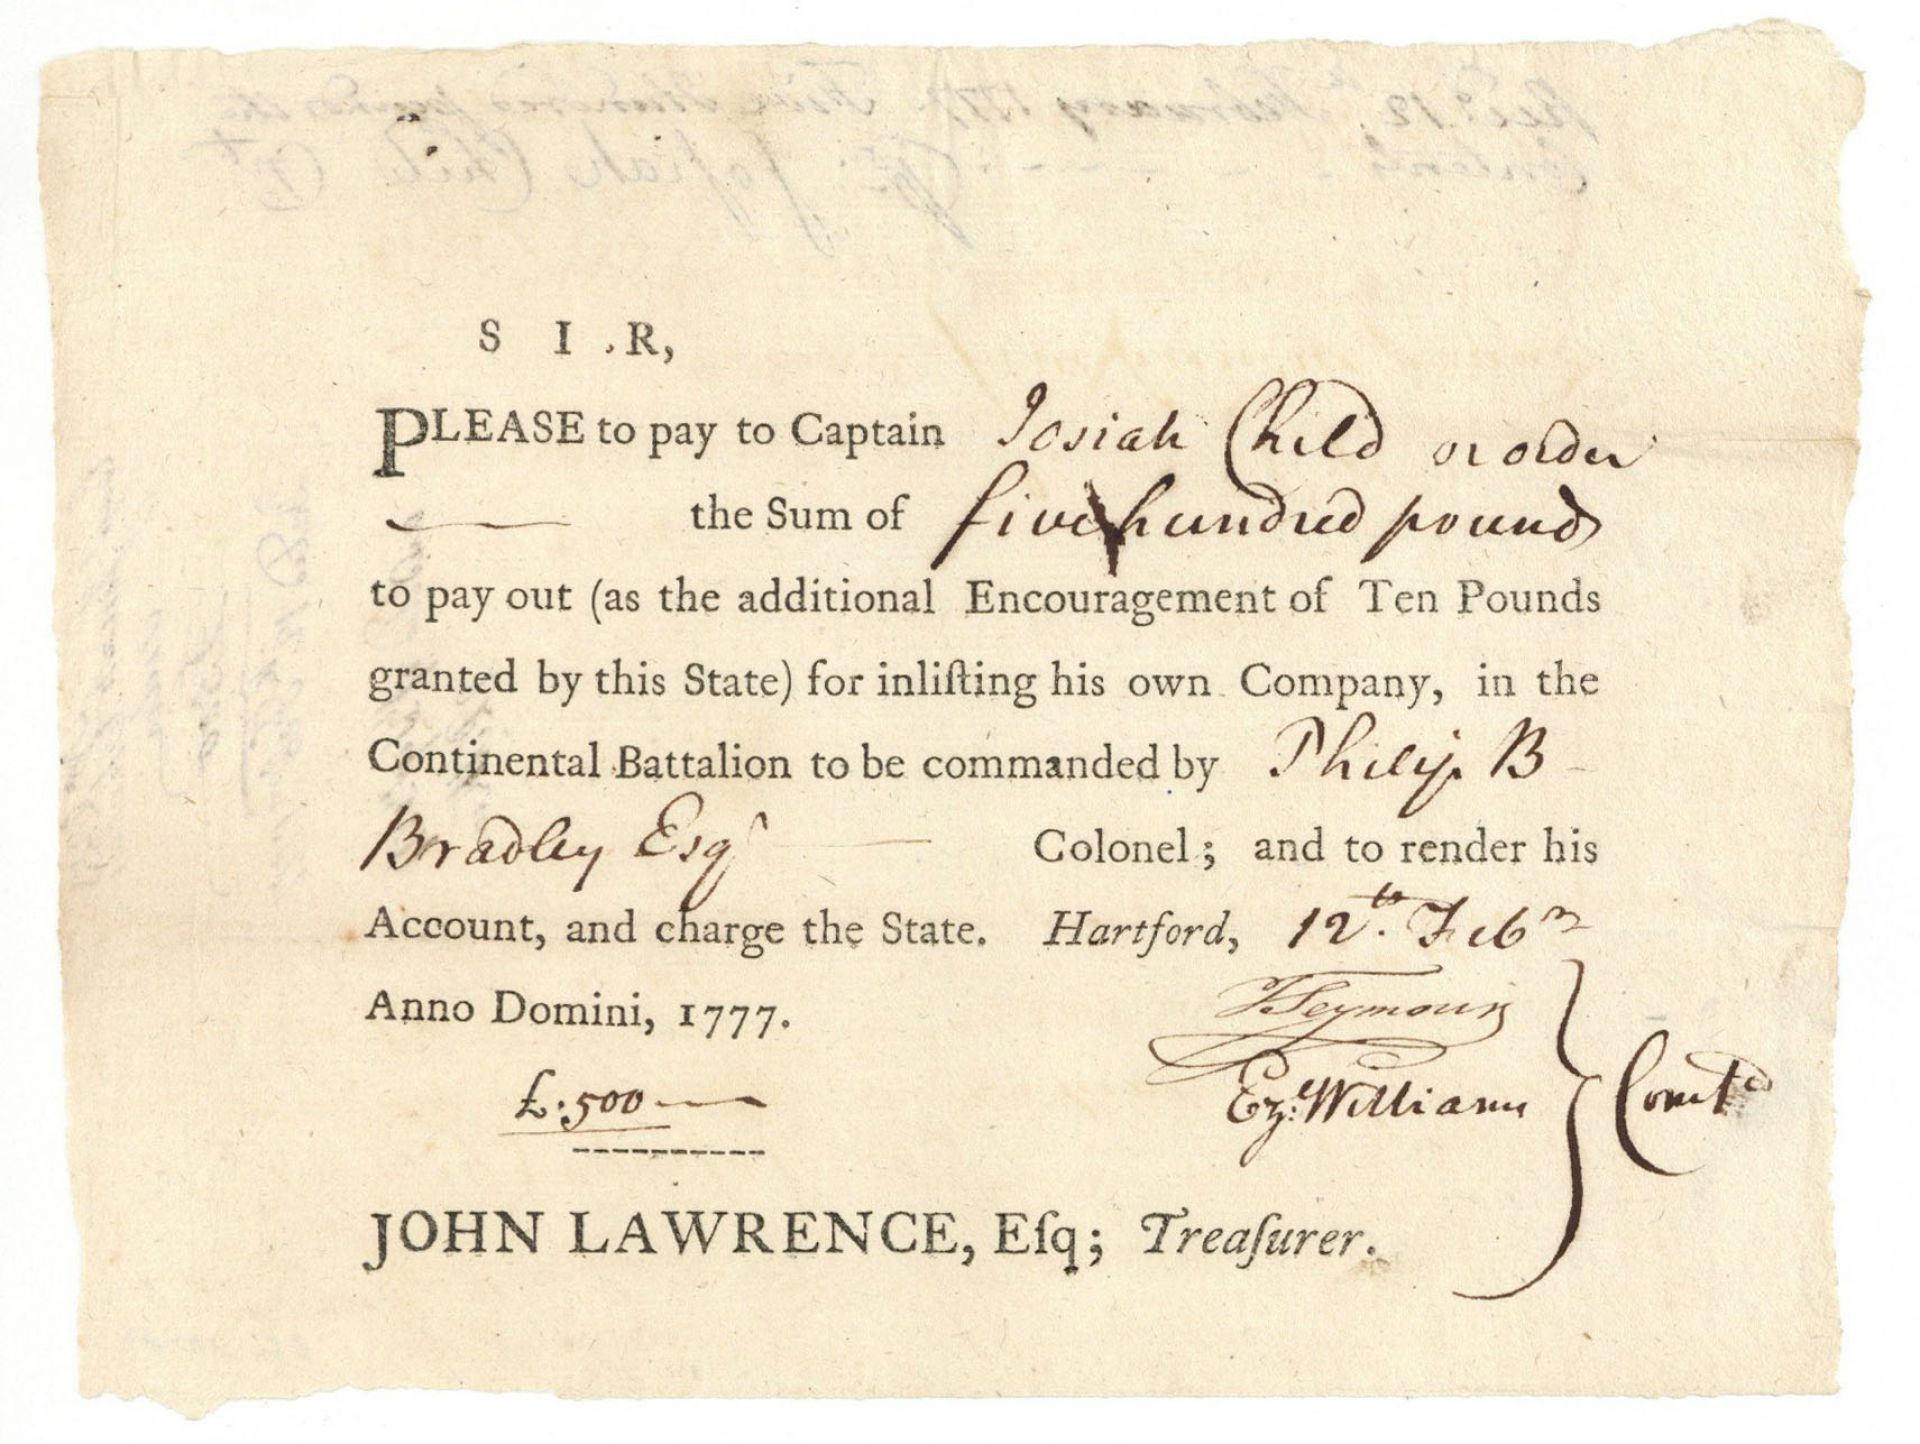 S I R,
PLEASE to pay to Captain Josiah Child or order
the Sum of five hundred pounds
to pay out (as the additional Encouragement of Ten Pounds
granted by this State) for inliſting his own Company, in the
Continental Battalion to be commanded by Philip B
Bradley Esqr Colonel; and to render his
Account, and charge the State. Hartford, 12th. Feby
Anno Domini, 1777.
TSeymour
£.500
Ez: Williams
Comtee
JOHN LAWRENCE, Eſq; Treaſurer.